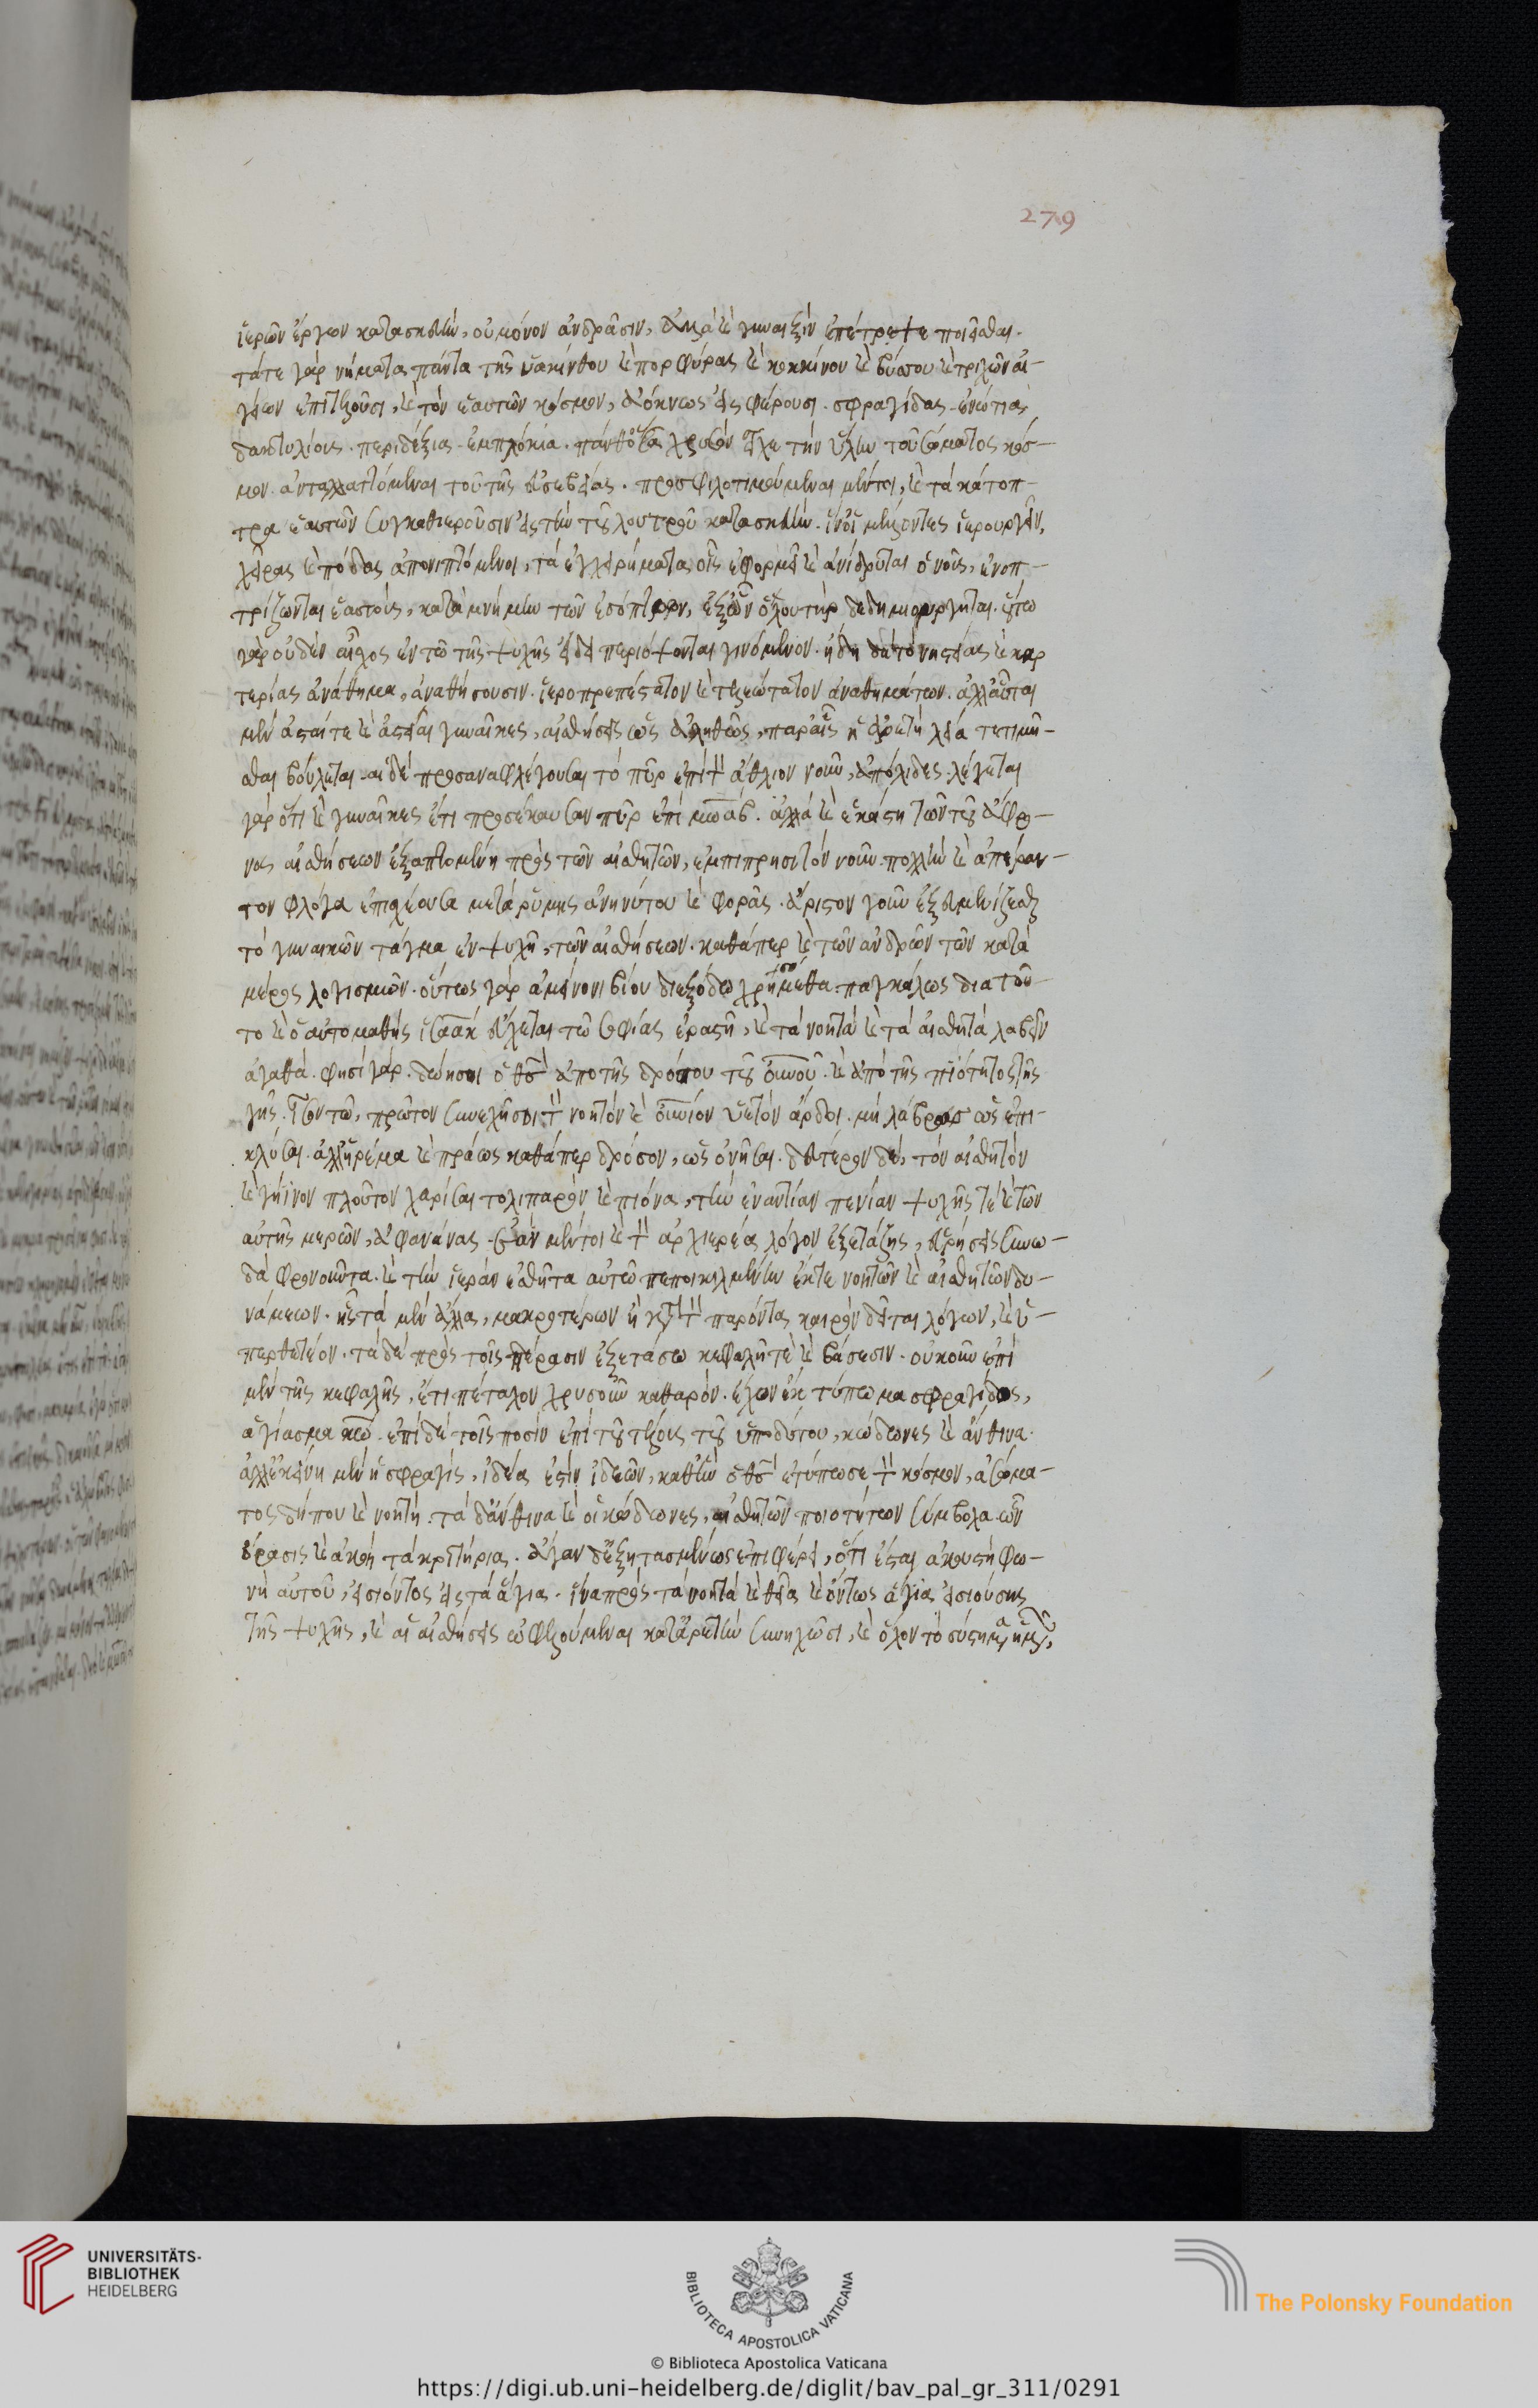 279
ἱερῶν ἔργων κατασκευὴν, οὐ μόνον ἀνδράσιν, ἀλλὰ καὶ γυναιξὶν ἐπέτρεψε ποιεῖσθαι.
τά τε γὰρ νήματα πάντα τῆς ὑακίνθου καὶ πορφύρας καὶ κοκκίνου καὶ βύσσου καὶ τριχῶν αἰ-
γείων ἐπιτελοῦσι, καὶ τὸν ἑαυτῶν κόσμον, ἀόκνως εἰσφέρουσι. σφραγίδας. ἐνώτια
δακτυλίους. περιδέξια. ἐμπλόκια. πάνθ' ὅσα χρυσὸν εἶχε τὴν ὕλην τοῦ σώματος κόσ-
μον ἀνταλλαττόμεναι τοῦ τῆς εὐσεβείας. προσφιλοτιμούμεναι μέντοι, καὶ τὰ κάτοπ-
τρα ἑαυτῶν συγκαθιεροῦσιν εἰς τὴν τοῦ λουτροῦ κατασκευὴν. ἵν' οἱ μέλλοντες ἱερουργεῖν,
χεῖρας καὶ πόδας ἀπονιπτόμενοι, τὰ ἐγχειρήματα οἷς ἐφορμεῖ καὶ ἀνίδρυται ὁ νοῦς, ἐνοπ-
τρίζωνται ἑαυτοὺς, κατὰ μνήμην τῶν ἐσόπτρων, ἐξ ὧν ὁ λουτὴρ δεδημιούργηται. οὕτω
γὰρ οὐδὲν αἶσχος ἐν τῷ τῆς ψυχῆς εἴδει περιόψονται γινόμενον. ἤδη δὲ τὸ νηστείας καὶ καρ
τερίας ἀνάθημα, ἀναθήσουσιν. ἱεροπρεπέστατον καὶ τελεώτατον ἀναθημάτων. ἀλλ' αὗται
μὲν ἀσταί τε καὶ ἀστεῖαι γυναῖκες, αἰσθήσεις ὡς ἀληθῶς, παρ' αἷς ἡ ἀρετὴ λεία τετιμῆ-
σθαι βούλεται. αἱ δὲ προσαναφλέγουσαι τὸ πῦρ ἐπὶ τὸν ἄθλιον νοῦν, ἀπόλιδες. λέγεται
γὰρ ὅτι καὶ γυναῖκες ἔτι προσέκαυσαν πῦρ ἐπὶ μωάβ. ἀλλὰ καὶ ἑκάστη τῶν τοῦ ἄφρο-
νος αἰσθήσεων ἐξαπτομένη πρὸς τῶν αἰσθητῶν, ἐμπίπρησι τὸν νοῦν πολλὴν καὶ ἀπέραν-
τον φλόγα ἐπιχέουσα μετὰ ῥύμης ἀνηνύτου καὶ φορᾶς. ἄριστον γοῦν ἐξευμενίζεσθαι
τὸ γυναικῶν τάγμα ἐν ψυχῇ, τῶν αἰσθήσεων. καθάπερ καὶ τῶν ἀνδρῶν τῶν κατὰ
μέρος λογισμῶν. οὕτως γὰρ ἀμείνονι βίου διεξόδῳ χρησόμεθα. παγκάλως διὰ τοῦ-
το καὶ ὁ αὐτομαθὴς ἰσαὰκ εὔχεται τῷ σοφίας ἐραστῇ, καὶ τὰ νοητὰ καὶ τὰ αἰσθητὰ λαβεῖν
ἀγαθά. φησὶ γάρ. δῴη σοι ὁ θεὸς ἀπὸ τῆς δρόσου τοῦ οὐνοῦ. καὶ ἀπὸ τῆς πιότητος τῆς
γῆς. ἴσον τῷ, πρῶτον συνεχῆ σοι τὸν νοητὸν καὶ οὐνίον ὑετὸν ἄρδοι. μὴ λάβρως ὡς ἐπι-
κλύσαι. ἀλλ' ἠρέμα καὶ πράως καθάπερ δρόσον, ὡς ὀνῆσαι. δεύτερον δὲ, τὸν αἰσθητὸν
καὶ γήϊνον πλοῦτον χαρίσαιτο λιπαρὸν καὶ πίονα, τὴν ἐναντίαν πενίαν ψυχῆς τε καὶ τῶν
αὐτῆς μερῶν, ἀφαυάνας. ἐὰν μέντοι καὶ τὸν ἀρχιερέα λόγον ἐξετάζῃς, εὑρήσεις συνῳ-
δὰ φρονοῦντα. καὶ τὴν ἱερὰν ἐσθῆτα αὐτῷ πεποικιλμένην ἔκ τε νοητῶν καὶ αἰσθητῶν δυ-
νάμεων. ἧς τὰ μὲν ἄλλα, μακροτέρων ἢ κατὰ τὸν παρόντα καιρὸν δεῖται λόγων, καὶ ὑ-
περθετέον. τὰ δὲ πρὸς τοῖς πέρασιν ἐξετάσω κεφαλῇ τε καὶ βάσεσιν. οὐκοῦν ἐπὶ
μὲν τῆς κεφαλῆς, ἔτι πέταλον χρυσοῦν καθαρόν. ἔχων ἐκτύπωμα σφραγίδος,
ἁγίασμα κῷ. ἐπὶ δὲ τοῖς ποσὶν ἐπὶ τοῦ τέλους τοῦ ὑποδύτου, κώδωνες καὶ ἄνθινα.
ἀλλ' ἐκείνη μὲν ἡ σφραγὶς, ἰδέα ἐστὶν ἰδεῶν, καθ' ἣν ὁ θεὸς ἐτύπωσε τὸν κόσμον, ἀσώμα-
τος δήπου καὶ νοητή. τὰ δ' ἄνθινα καὶ οἱ κώδωνες, αἰσθητῶν ποιοτήτων σύμβολα. ὧν
ὅρασις καὶ ἀκοὴ τὰ κριτήρια. ἄγαν δ' ἐξητασμένως ἐπιφέρει, ὅτι ἔσται ἀκουστὴ φω-
νὴ αὐτοῦ, εἰσιόντος εἰς τὰ ἅγια. ἵνα πρὸς τὰ νοητὰ καὶ θεῖα καὶ ὄντως ἅγια εἰσιούσης
τῆς ψυχῆς, καὶ αἱ αἰσθήσεις ὠφελούμεναι κατ' ἀρετὴν συνηχῶσι, καὶ ὅλον τὸ σύστημα ἡμῶν,
UNIVERSITÄTS-
BIBLIOTHEK
HEIDELBERG
BIBLIOTECA APOSTOLICA VATICANA
The Polonsky Foundation
© Biblioteca Apostolica Vaticana
https://digi.ub.uni-heidelberg.de/diglit/bav_pal_gr_311/0291